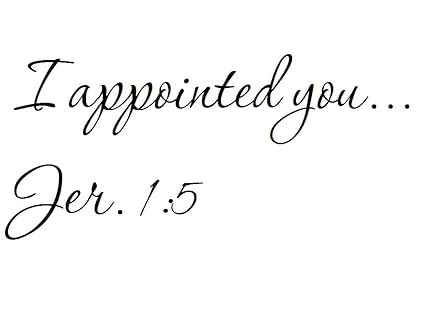 I appointed you...
Jer. 1:5